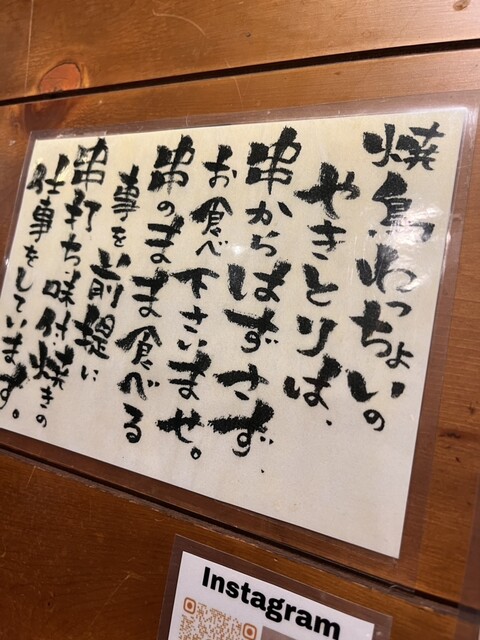 焼鳥わっちょいの
やきとりは、
串からはずさず、
お食べ下さいませ。
串のまま食べる
事を前提に
串打ち味付焼きの
仕事をしています。
Instagram